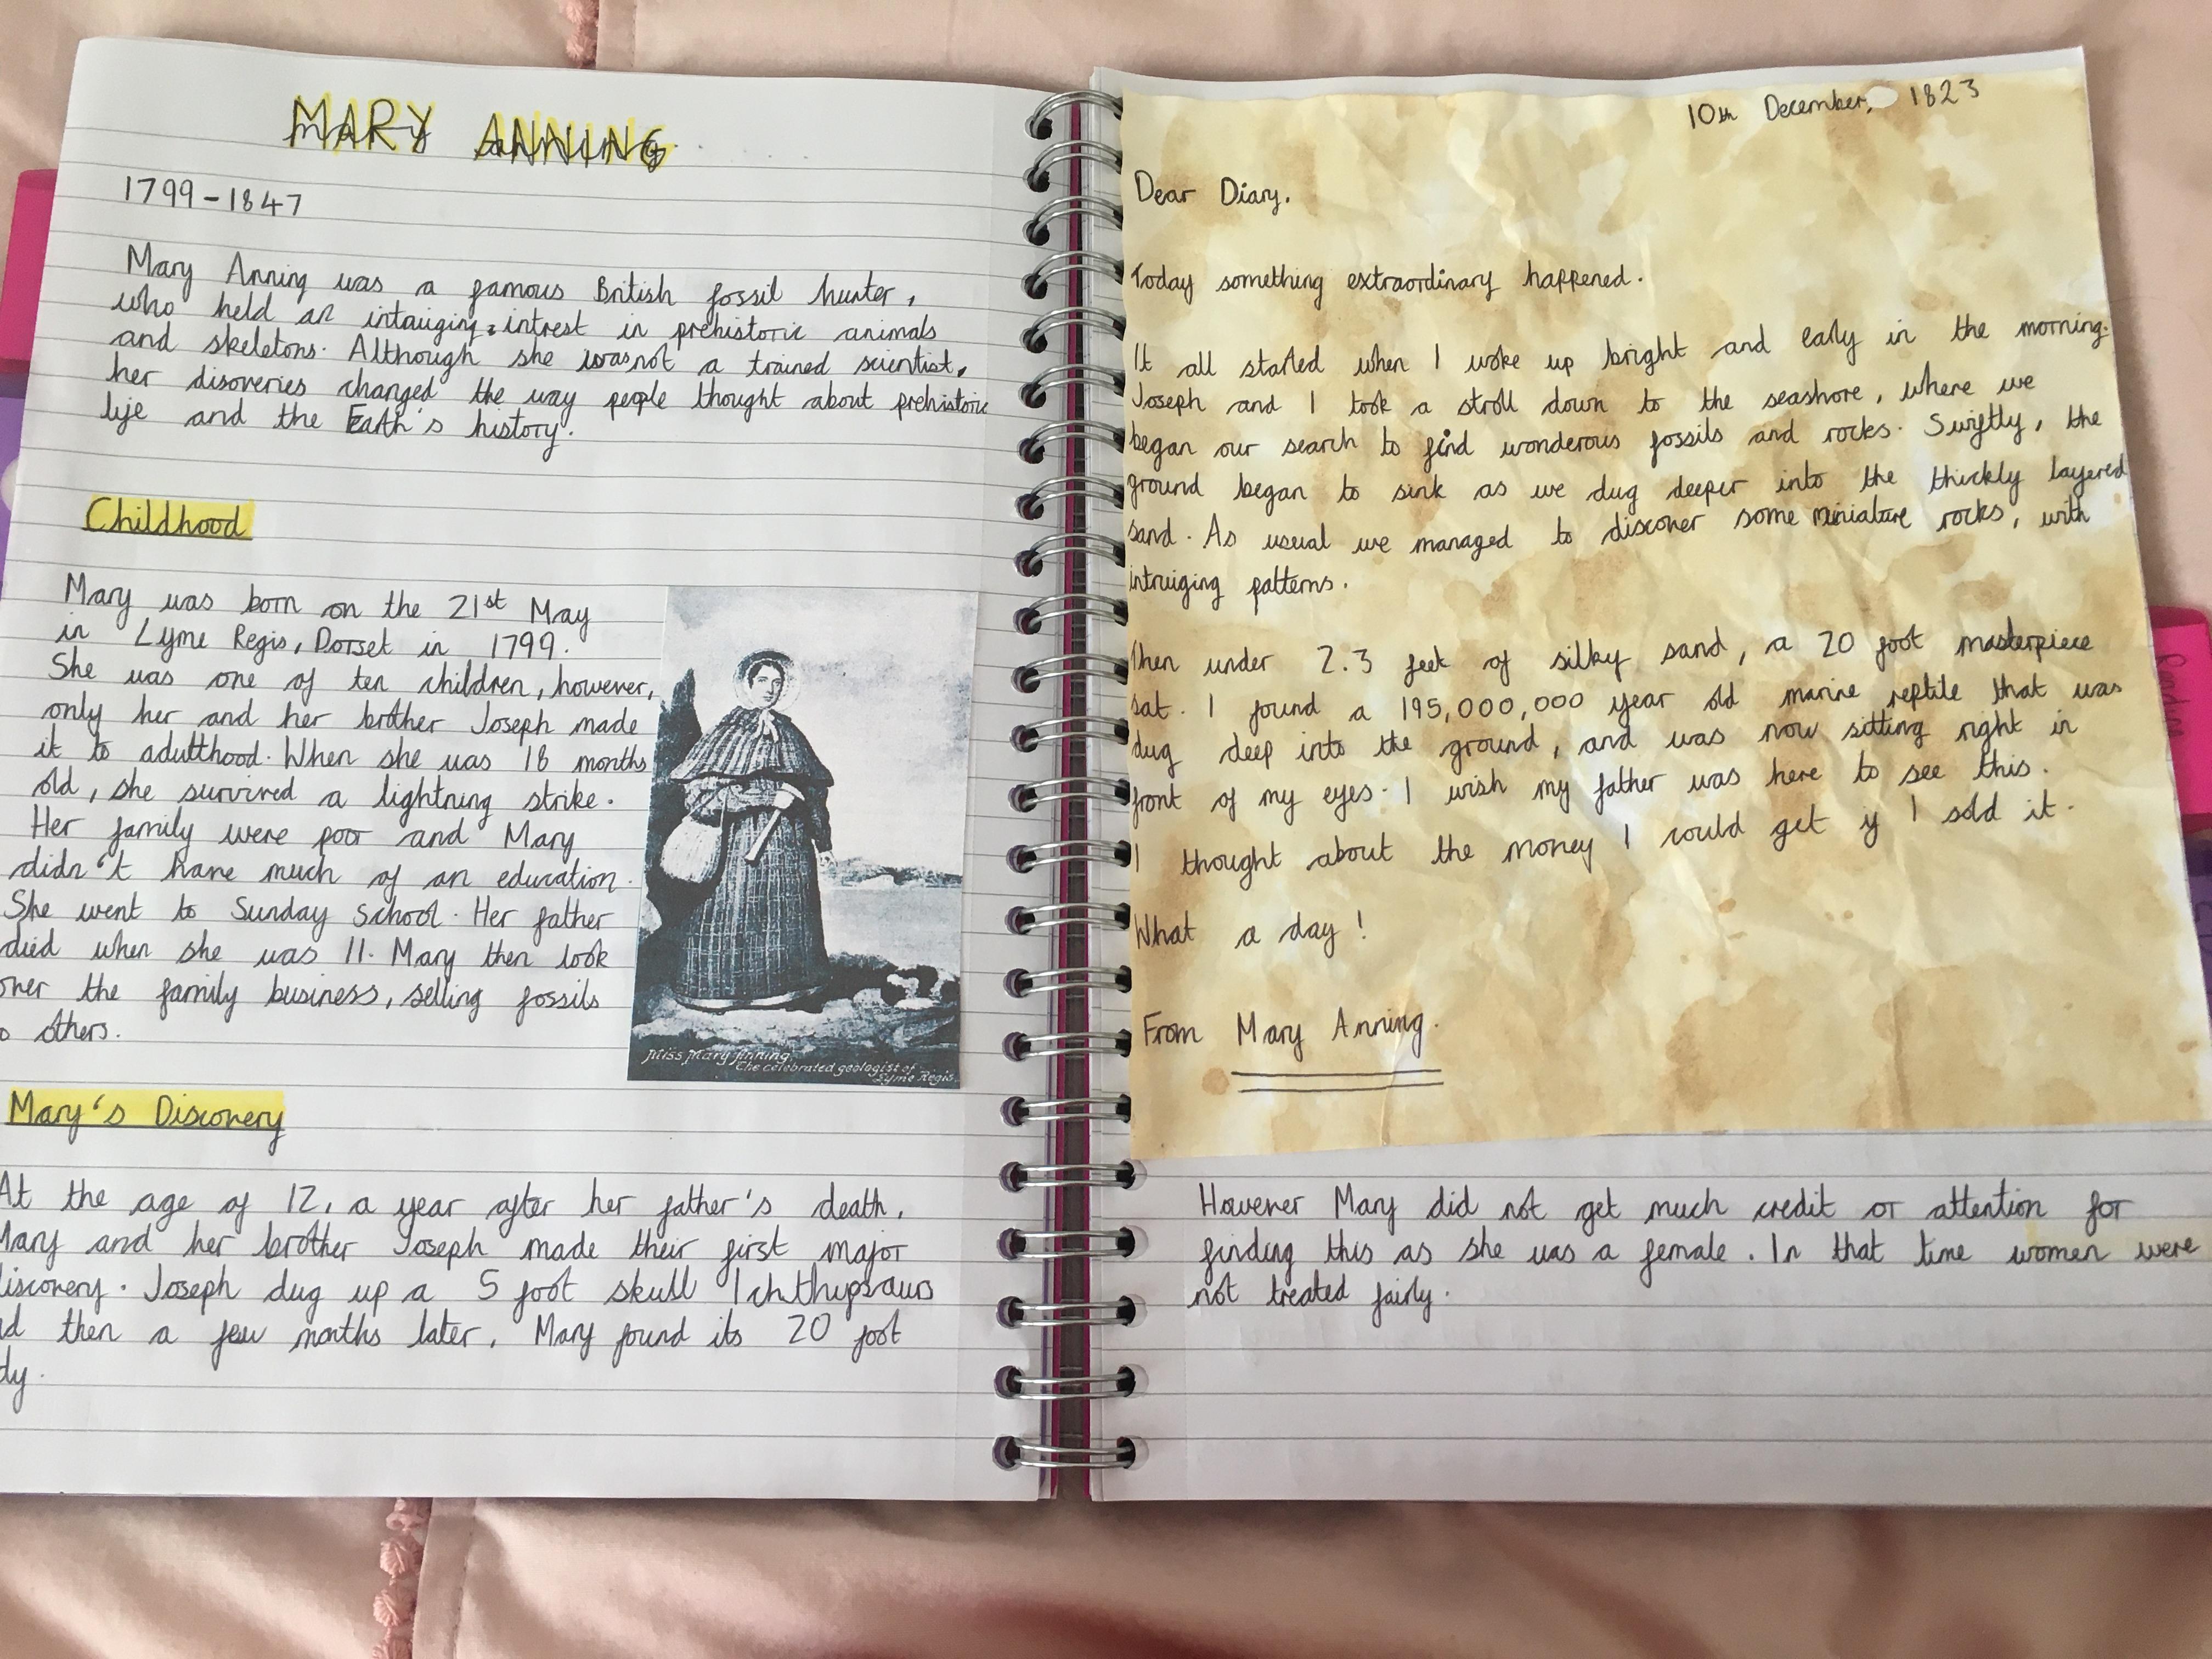 MARY ANNING
1799-1847
Mary Anning was a famous British fossil hunter,
who held an intruiging intrest in prehistoric animals
and skeletons. Although she was not a trained scientist,
her disoveries changed the way people thought about prehistoric
life and the Earth's history.
Childhood
Mary was born on the 21st May
in Lyme Regis, Dorset in 1799.
She was one of ten children, however,
only her and her brother Joseph made
it to adulthood. When she was 18 months
old, she survived a lightning strike.
Her family were poor and Mary
didn't have much of an education.
She went to Sunday School. Her father
died when she was 11. Mary then took
over the family business, selling fossils
others.
Miss Mary Anning,
The celebrated geologist of
Lyme Regis.
Mary's Discovery
At the age of 12, a year after her father's death,
Mary and her brother Joseph made their first major
discovery. Joseph dug up a 5 foot skull
then a few months later, Mary found its 20 foot
10th December, 1823
Dear Diary,
Today something extraordinary happened.
It all started when I woke up bright and early in the morning.
Joseph and I took a stroll down to the seashore, where we
began our search to find wonderous fossils and rocks. Swiftly, the
ground began to sink as we dug deeper into the thickly layered
sand. As usual we managed to discover some miniature rocks, with
intruiging patterns.
Then under 2.3 feet of silky sand, a 20 foot masterpiece
sat. I found a 195,000,000 year old marine reptile that was
dug deep into the ground, and was now sitting right in
front of my eyes. I wish my father was here to see this.
I thought about the money I could get if I sold it.
What a day!
From Mary Anning.
However Mary did not get much credit or attention for
finding this as she was a female. In that time women were
not treated fairly.